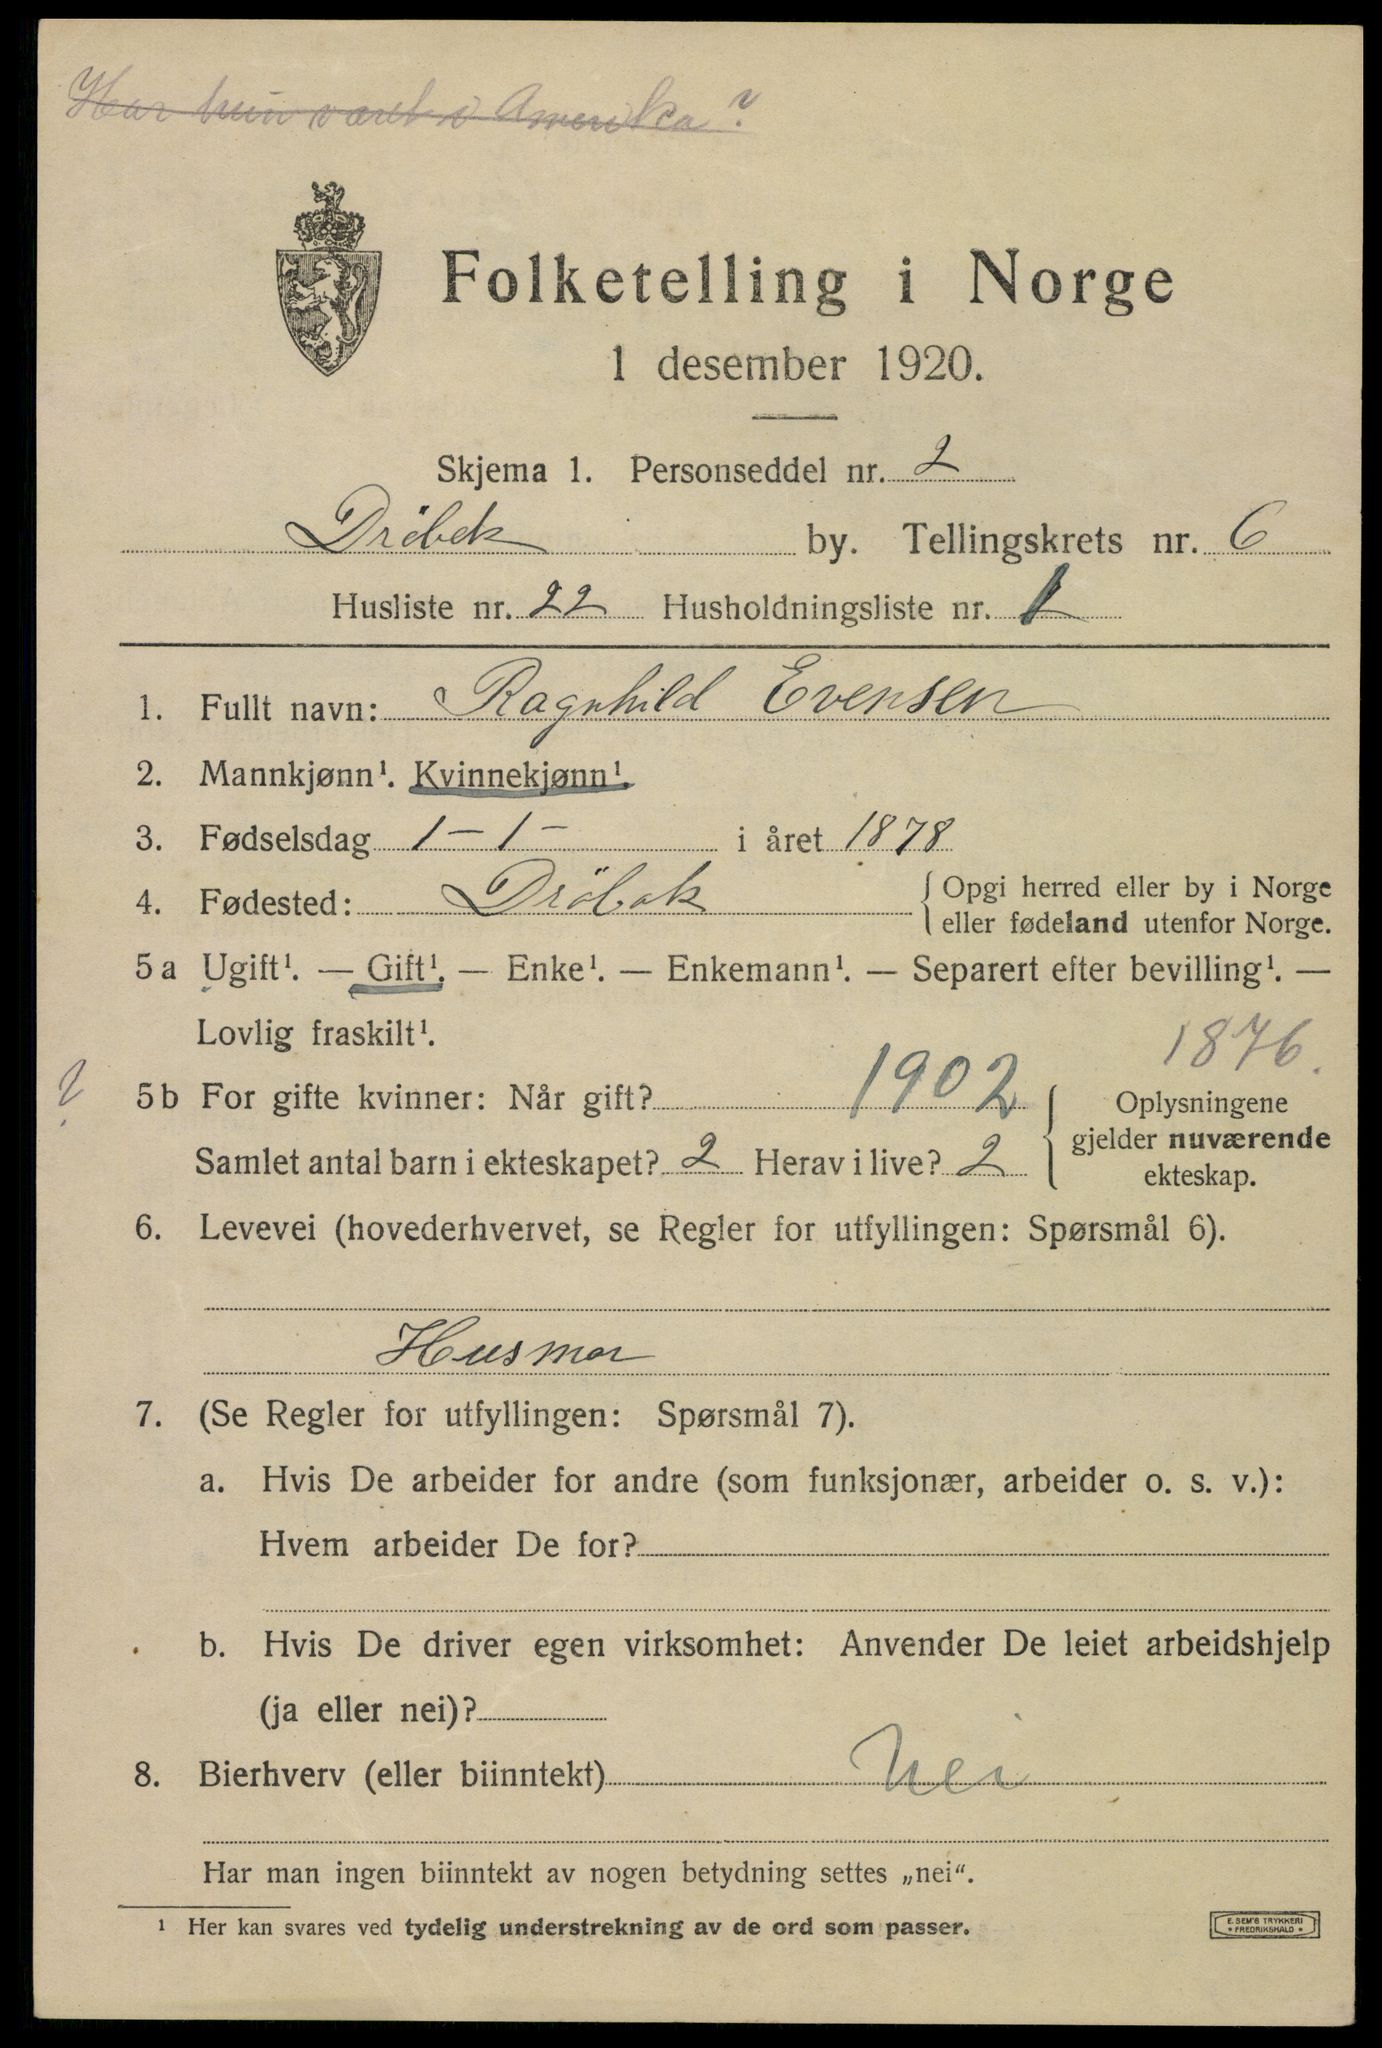 Har hun været i Amerika?
Folketelling i Norge
1 desember 1920.
Skjema 1. Personseddel nr. 2
Dröbak by. Tellingskrets nr. 6
Husliste nr. 22 Husholdningsliste nr. 1
1. Fullt navn: Ragnhild Evensen
2. Mannkjønn¹. Kvinnekjønn¹.
3. Fødselsdag 1-1- i året 1878
4. Fødested: Dröbak { Opgi herred eller by i Norge
eller fødeland utenfor Norge.
5a Ugift¹. — Gift¹. — Enke¹. — Enkemann¹. — Separert efter bevilling¹. —
Lovlig fraskilt¹.
1876.
? 5b For gifte kvinner: Når gift? 1902
Samlet antal barn i ekteskapet? 2 Herav i live? 2
{ Oplysningene
gjelder nuværende
ekteskap.
6. Levevei (hovederhvervet, se Regler for utfyllingen: Spørsmål 6).
Husmor
7. (Se Regler for utfyllingen: Spørsmål 7).
a. Hvis De arbeider for andre (som funksjonær, arbeider o. s. v.):
Hvem arbeider De for?
b. Hvis De driver egen virksomhet: Anvender De leiet arbeidshjelp
(ja eller nei)?
8. Bierhverv (eller biinntekt) Nei
Har man ingen biinntekt av nogen betydning settes „nei“.
¹ Her kan svares ved tydelig understrekning av de ord som passer.
E. SEM'S TRYKKERI
* FREDRIKSHALD *